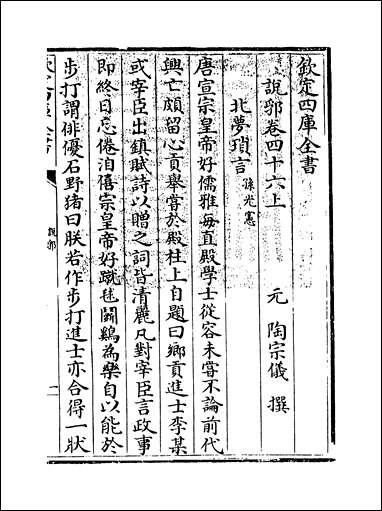 欽定四庫全書
說郛卷四十六上
元 陶宗儀 撰
北夢瑣言 孫光憲
唐宣宗皇帝好儒雅每直殿學士從容未嘗不論前代
興亡頗留心貢舉嘗於殿柱上自題曰鄉貢進士李某
或宰臣出鎮賦詩以贈之詞皆清麗凡對宰臣言政事
即終日忘倦洎僖宗皇帝好蹴毬鬬鷄為樂自以能於
步打謂俳優石野猪曰朕若作步打進士亦合得一狀
說郛
一